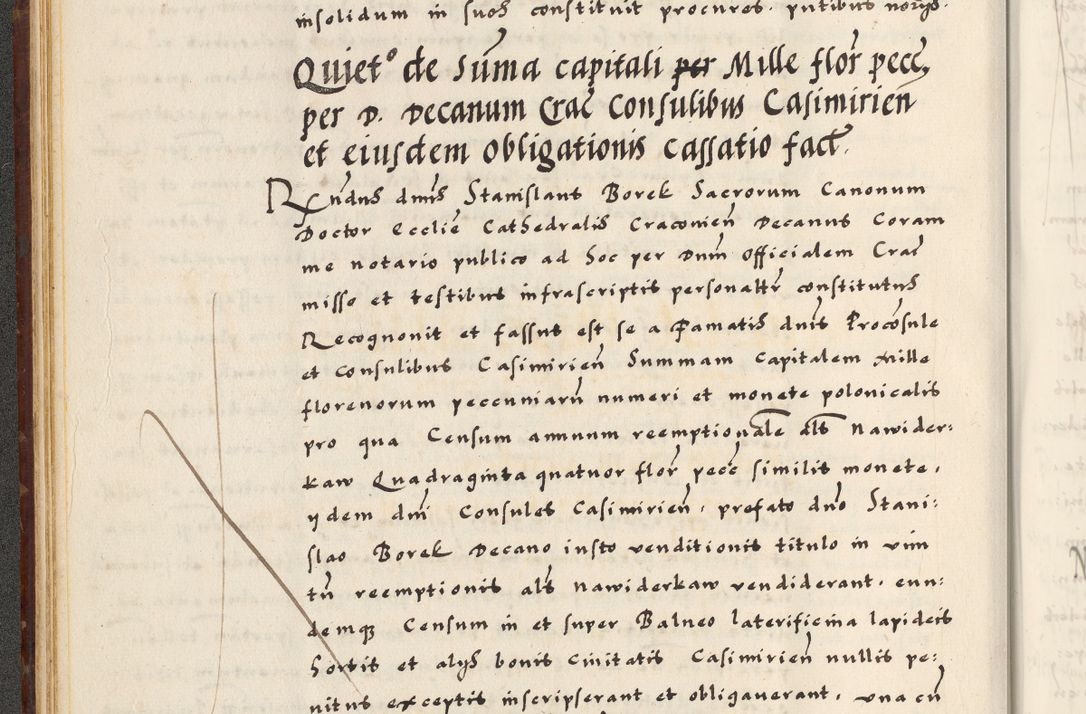 insolidum in suos constituit procures. pntibus norys.
Quieto de Suma capitali per Mille flor pecc
per D. Decanum Crac Consulibus Casimirien
et eiusdem obligationis cassatio fact.
Rndus dnus Stanislaus Borek Sacrorum Canonum
Doctor Ecclie Cathedralis Cracovien Decanus Coram
me notario publico ad hoc per Dnm Officialem Crac
misso et testibus infrascriptis personaltr constitutus
Recognovit et fassus est se a Famatis dnis Procosule
et Consulibus Casimirien Summam Capitalem Mille
florenorum peccuniarn numeri et monete polonicalis
pro qua Censum annuum reemptionale als Nawider:
kaw Quadraginta quatuor flor pecc similis monete,
ydem dni Consules Casimirien, prefato dno Stani:
slao Borek Decano iusto venditionis titulo in vim
tn reemptionis als Nawiderkaw vendiderant, eun:
demq Censum in et super Balneo laterificina lapideis
hortis et alys bonis Civitatis Casimirien nullis pe:
nitus exceptis inscripserant et obligaverant, una cu